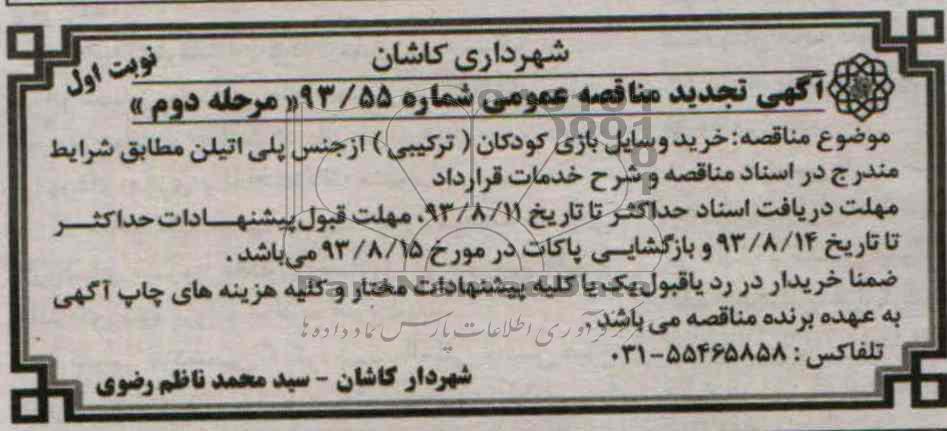 شهرداری کاشان
نوبت اول
آگهی تجدید مناقصه عمومی شماره ۹۳/۵۵ « مرحله دوم »
موضوع مناقصه: خرید وسایل بازی کودکان ( ترکیبی ) از جنس پلی اتیلن مطابق شرایط
مندرج در اسناد مناقصه و شرح خدمات قرارداد
مهلت دریافت اسناد حداکثر تا تاریخ ۹۳/۸/۱۱، مهلت قبول پیشنهادات حداکثر
تا تاریخ ۹۳/۸/۱۴ و بازگشایی پاکات در مورخ ۹۳/۸/۱۵ می باشد .
ضمنا خریدار در رد یا قبول یک یا کلیه پیشنهادات مختار و کلیه هزینه های چاپ آگهی
به عهده برنده مناقصه می باشد .
مرکز گردآوری اطلاعات پارس نماد داده ها
تلفاکس : ۵۵۴۶۵۸۵۸-۰۳۱
شهردار کاشان - سید محمد ناظم رضوی